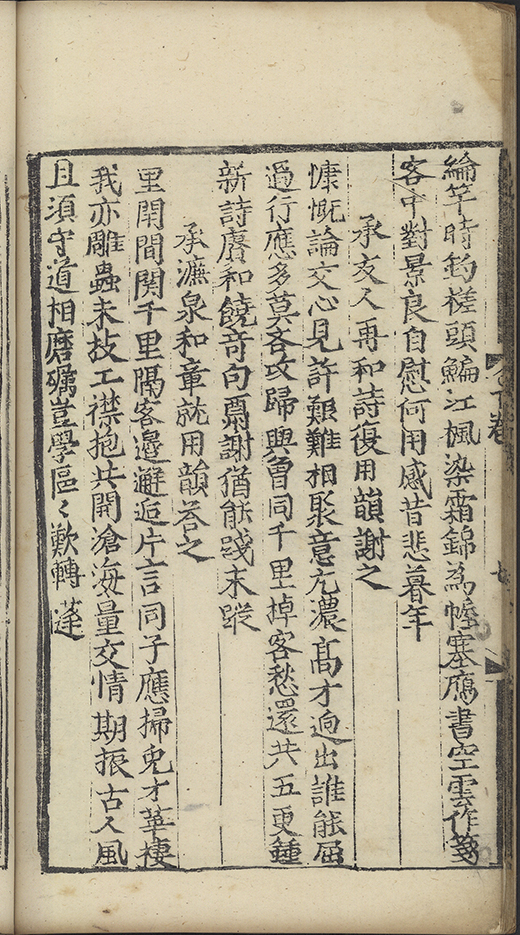 綸竿時釣槎頭鯿江楓染霜錦為幄塞鴈書空雲作箋
客中對景良自慰何用感昔悲暮年
承友人再和詩復用韻謝之
慷慨論交心見許艱難相聚意尤濃髙才逈出誰能屈
過行應多莫吝攻歸興曾同千里棹客愁還共五更鍾
新詩賡和饒竒句謝猶能踐末蹤
承濂泉和章就用韻答之
里閈間関千里隔客邊邂逅片言同子應掃兎才華捿
我亦雕蟲末技工襟抱共開滄海量交情期振古人風
且須守道相磨礪豈學區〻歎轉蓬